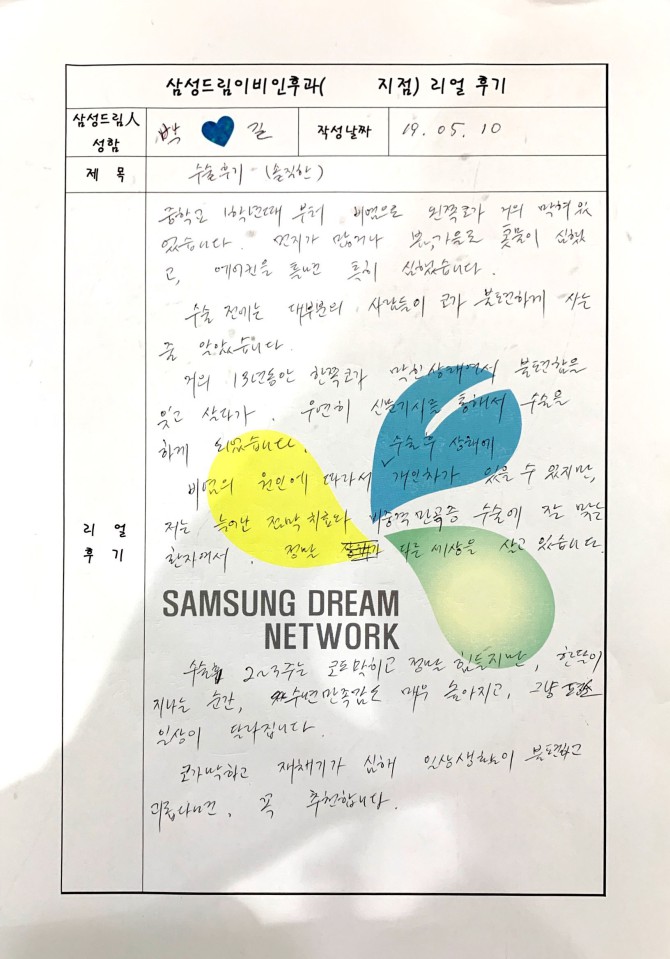 삼성드림이비인후과( 지점) 리얼 후기
삼성드림人
성함
박 길
작성날짜
19. 05. 10
제 목
수술후기 (솔직한)
리 얼
후 기
중학교 1학년때 부터 비염으로 왼쪽코가 거의 막혀 있
었습니다. 먼지가 많거나 봄,가을로 콧물이 심했
고, 에어컨을 틀면 특히 심했습니다.
수술 전에는 대부분의 사람들이 코가 불편하게 사는
줄 알았습니다.
거의 13년동안 한쪽코가 막힌상태에서 불편함을
잊고 살다가. 우연히 신문기사를 통해서 수술을
하게 되었습니다.
수술후 상태에
비염의 원인에 따라서 ✓개인차가 있을 수 있지만,
저는 늘어난 점막 치료와 비중격만곡증 수술에 잘 맞는
환자여서. 정말 다른 세상을 살고 있습니다.
SAMSUNG DREAM
NETWORK
수술후 2~3주는 코도막히고 정말 힘들지만, 한달이
지나는 순간, 수면만족감도 매우 높아지고, 그냥
일상이 달라집니다.
코가막히고 재채기가 심해 일상생활이 불편하고
괴롭다면, 꼭 추천합니다.